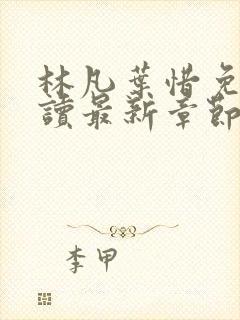 林凡葉惜免
讀最新章節
李甲